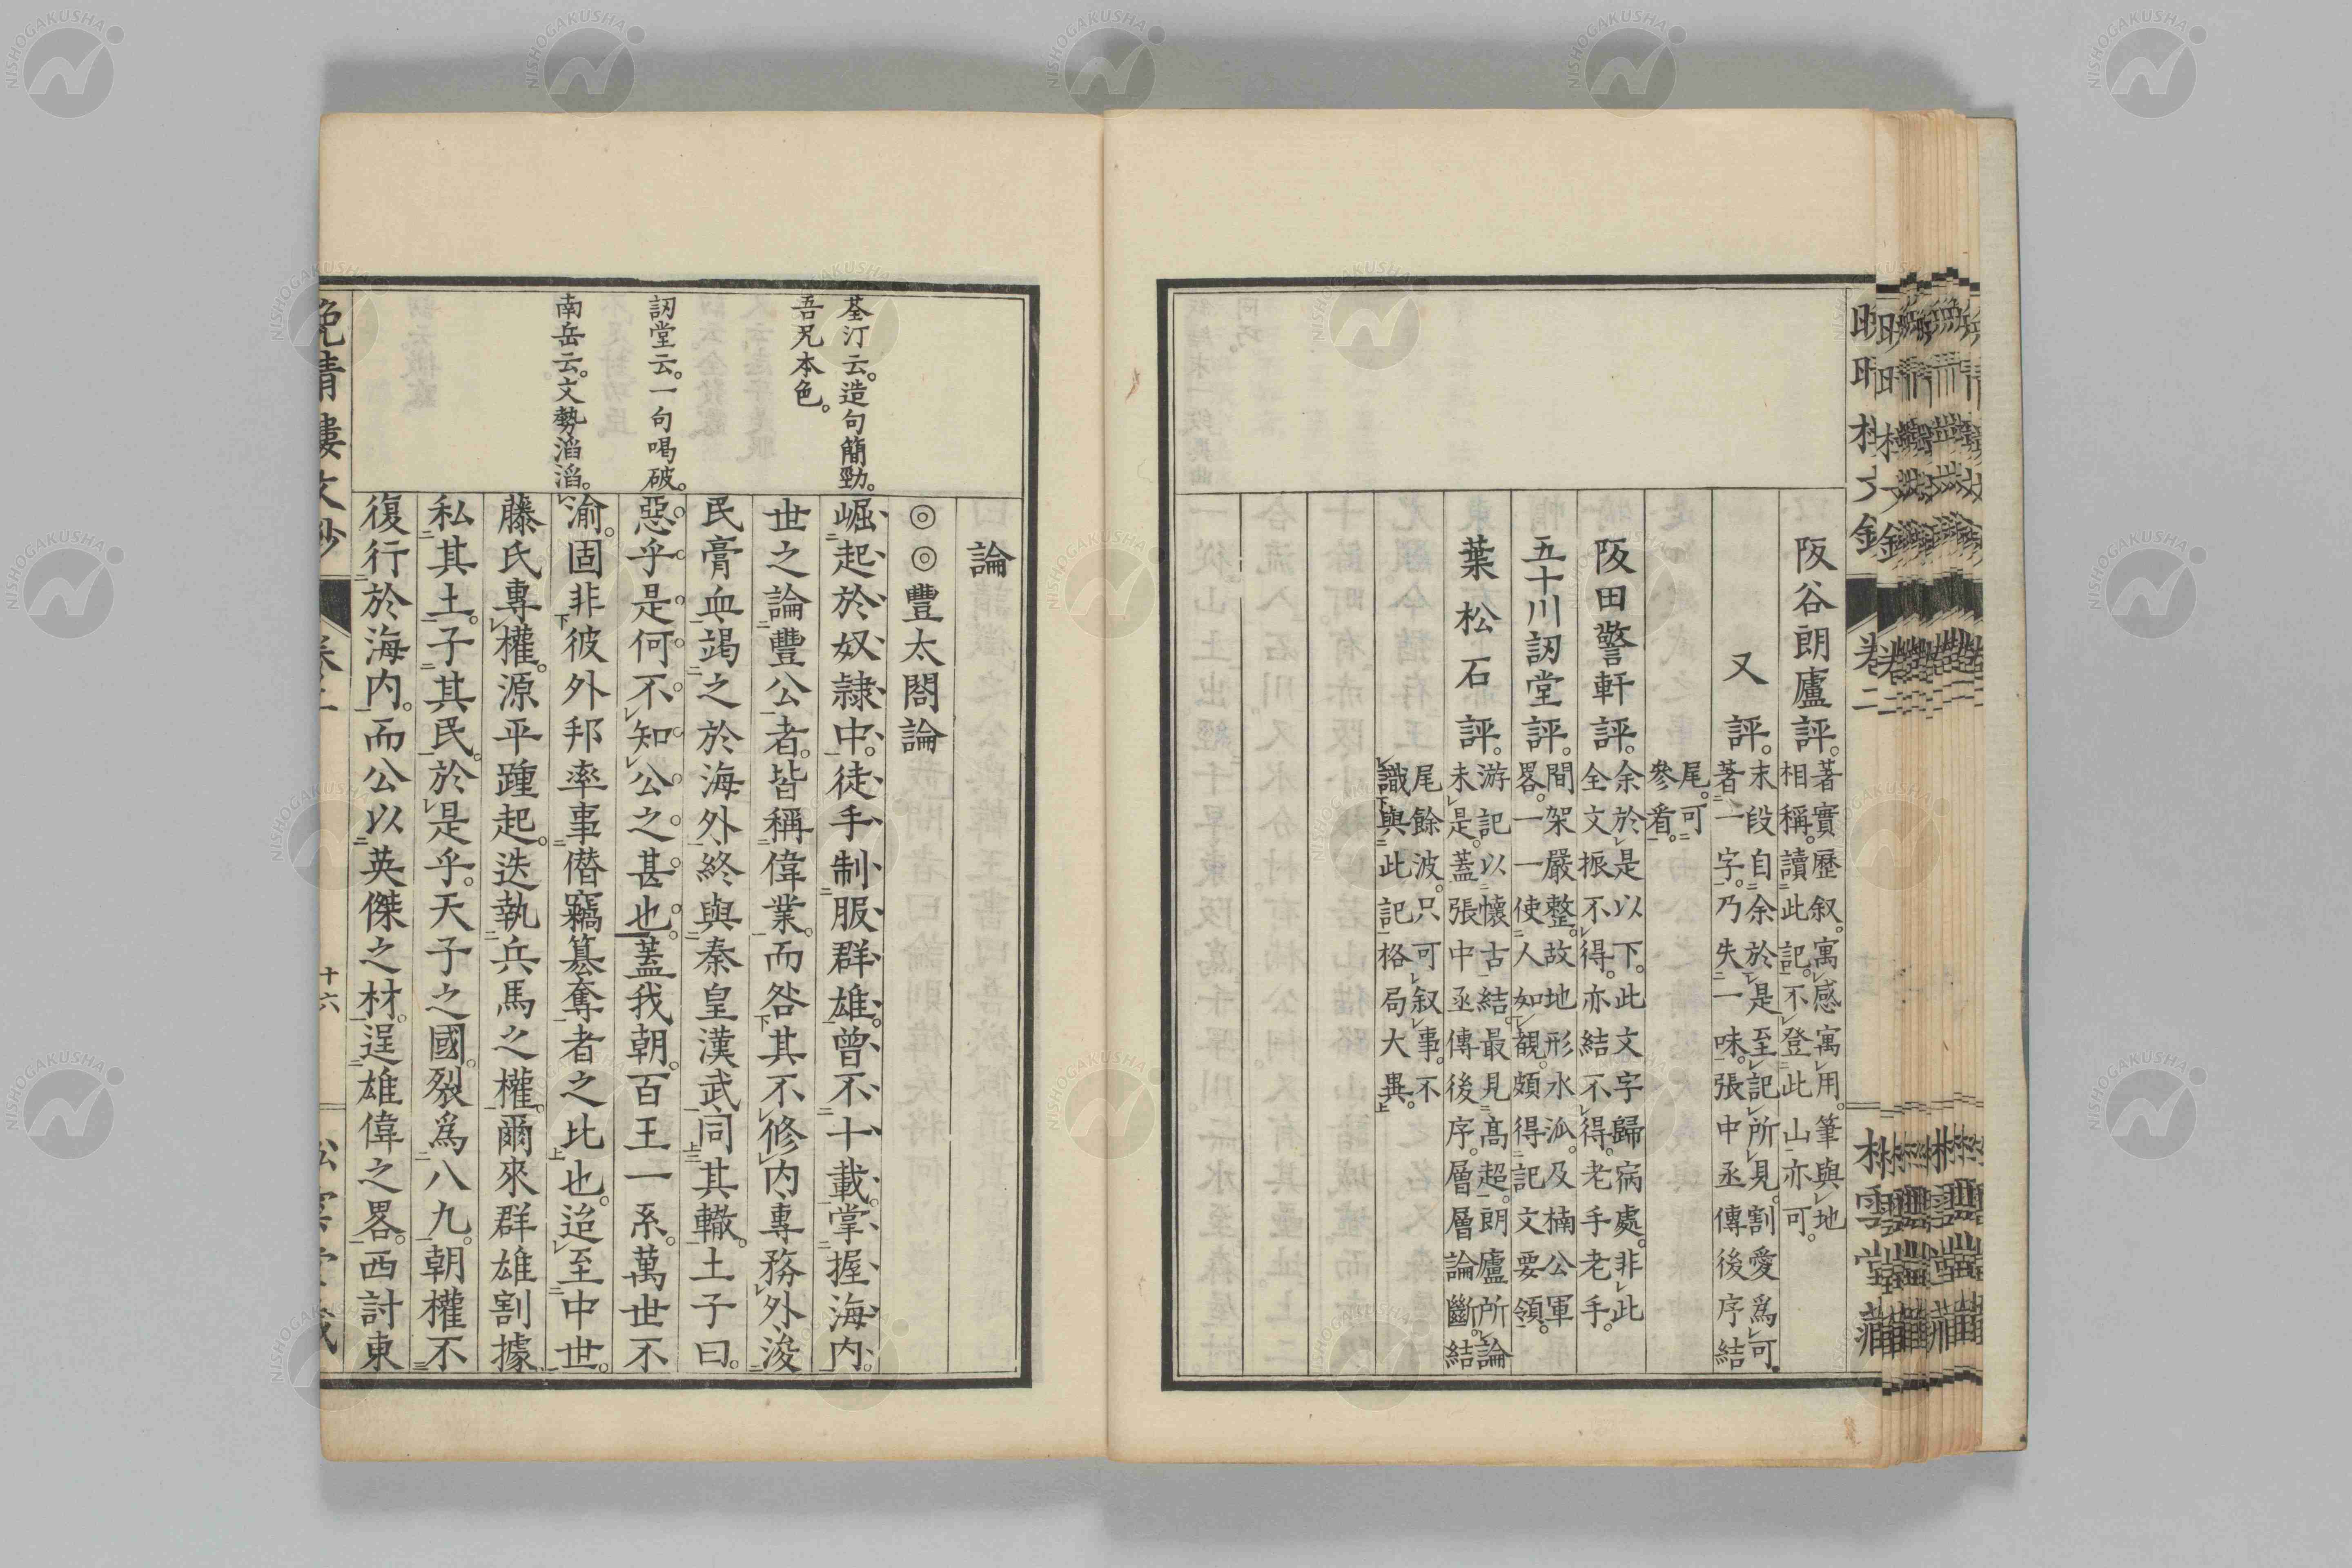 阪谷朗廬評。著實歷叙。寓感寓用。筆與地
相稱。讀此記。不登此山亦可。
又評。末段自余於是至記所見。割愛爲可。
著一字。乃失一味。張中丞傳後序結
尾。可
參看。
阪田警軒評。余於是以下。此文字歸病處。非此
全文振不得。亦結不得。老手老手。
五十川訒堂評。間架嚴整。故地形水泒。及楠公軍
畧。一一使人如觀。頗得記文要領。
葉松石評。游記以懷古結。最見高超。朗廬所論
未是。蓋張中丞傳後序。層層論斷。結
尾餘波。只可叙事。不
識與此記格局大異。
論
◎◎豐太閤論
崛起於奴隷中。徒手制服群雄。曾不十載。掌握海内。
世之論豐公者。皆稱偉業。而咎其不修内專務外。浚
民膏血。竭之於海外。終與秦皇漢武同其轍。士子曰。
惡乎。是何不知公之甚也。蓋我朝。百王一系。萬世不
渝。固非彼外邦率事僭竊簒奪者之比也。迨至中世。
藤氏專權。源平踵起。迭執兵馬之權。爾來群雄割據。
私其土。子其民。於是乎。天子之國。裂爲八九。朝權不
復行於海内。而公以英傑之材。逞雄偉之畧。西討東
荃汀云。造句簡勁。
吾兄本色。
訒堂云。一句喝破。
南岳云。文勢滔滔。
晩晴樓文鈔
十六
卷二